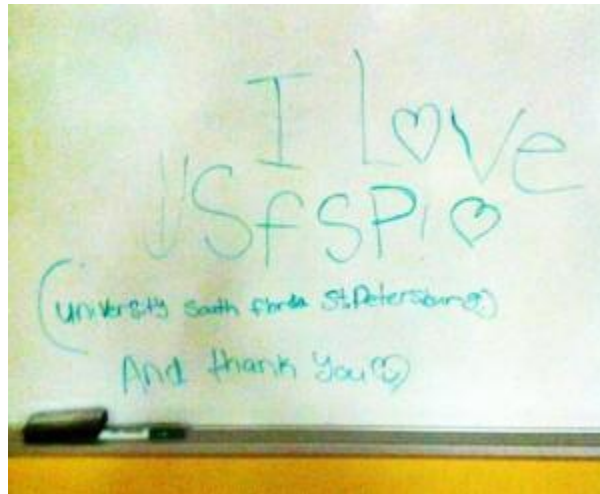 I Love
USfSP! ♡
(University South florida St.Petersburg)
And thank you ♡